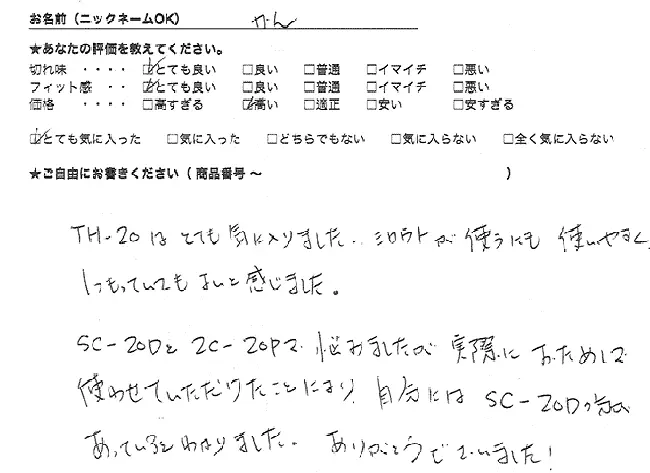 お名前（ニックネームOK） かん
★あなたの評価を教えてください。
切れ味 ・・・・ ☑とても良い □良い □普通 □イマイチ □悪い
フィット感 ・・ ☑とても良い □良い □普通 □イマイチ □悪い
価格 ・・・・ □高すぎる ☑高い □適正 □安い □安すぎる
☑とても気に入った □気に入った □どちらでもない □気に入らない □全く気に入らない
★ご自由にお書きください（ 商品番号 ～ ）
TH-20はとても気に入りました。シロウトが使うにも使いやすく、
1つもっていてもよいと感じました。
SC-20DとZC-20Pで悩みましたが実際におためしで
使わせていただけたことにより、自分にはSC-20Dの方が
あっているとわかりました。ありがとうございました！